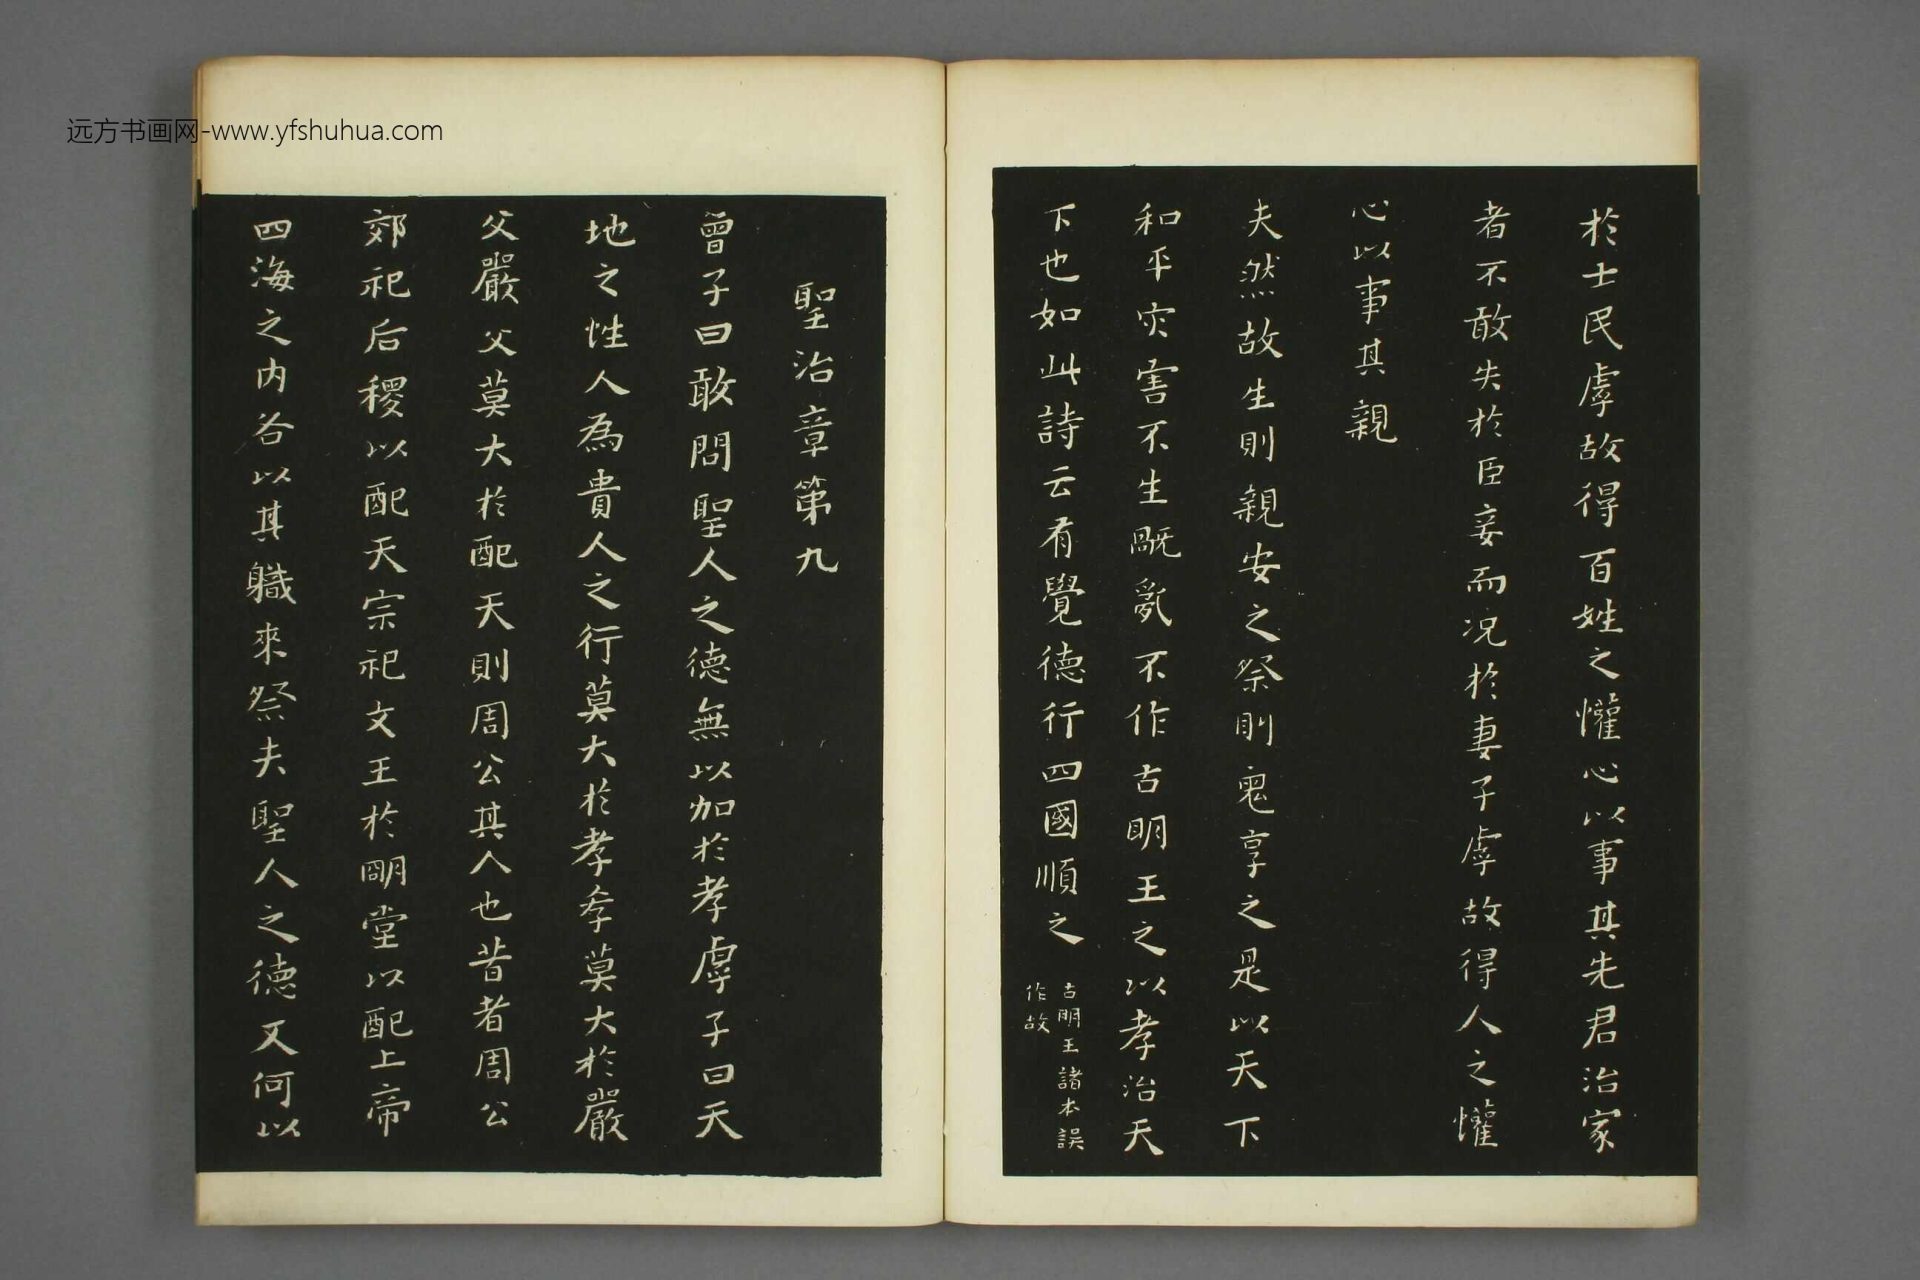 远方书画网-www.yfshuhua.com
於士民虖故得百姓之懽心以事其先君治家
者不敢失於臣妾而况於妻子虖故得人之懽
心以事其親
夫然故生則親安之祭則鬼享之是以天下
和平灾害不生䣺亂不作古明王之以孝治天
下也如此詩云有覺德行四國順之
古明王諸本誤
作故
聖治章第九
曾子曰敢問聖人之德無以加於孝虖子曰天
地之性人為貴人之行莫大於孝孝莫大於嚴
父嚴父莫大於配天則周公其人也昔者周公
郊祀后稷以配天宗祀文王於明堂以配上帝
四海之内各以其職來祭夫聖人之德又何以